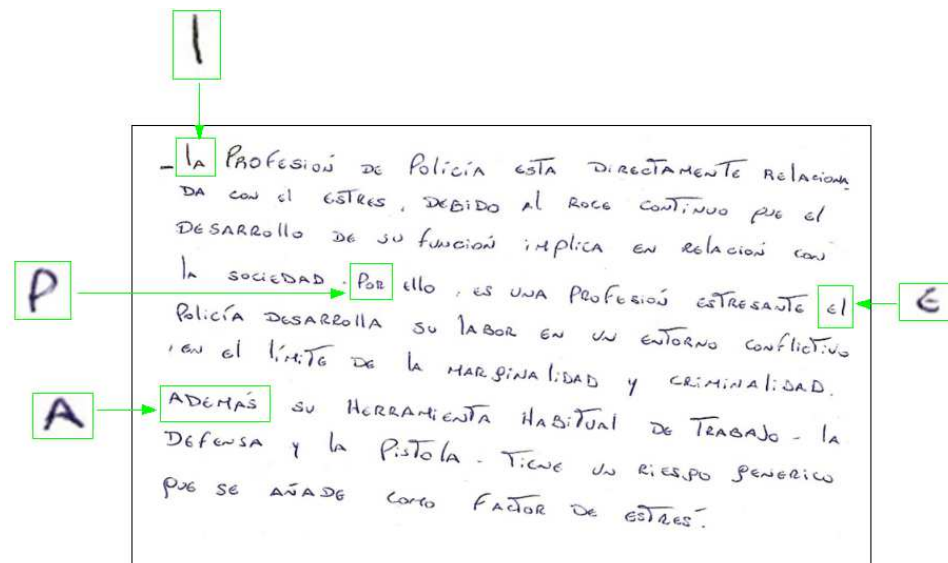 l
- lA PROFESIÓN DE POLICÍA ESTA DIRECTAMENTE RELACIONA
DA CON El ESTRES, DEBIDO Al ROCE CONTINUO QUE El
DESARROLLO DE SU FUNCIÓN IMPLICA EN RELACION CON
lA SOCIEDAD. POR Ello, ES UNA PROFESIÓN ESTRESANTE El
P
E
POLICÍA DESARROLLA SU LABOR EN UN ENTORNO CONFLICTIVO
, EN El LÍMITE DE LA MARGINALIDAD Y CRIMINALIDAD.
A
ADEMÁS SU HERRAMIENTA HABITUAL DE TRABAJO - lA
DEFENSA Y LA PISTOLA - TIENE UN RIESGO GENERICO
QUE SE AÑADE COMO FACTOR DE ESTRÉS.